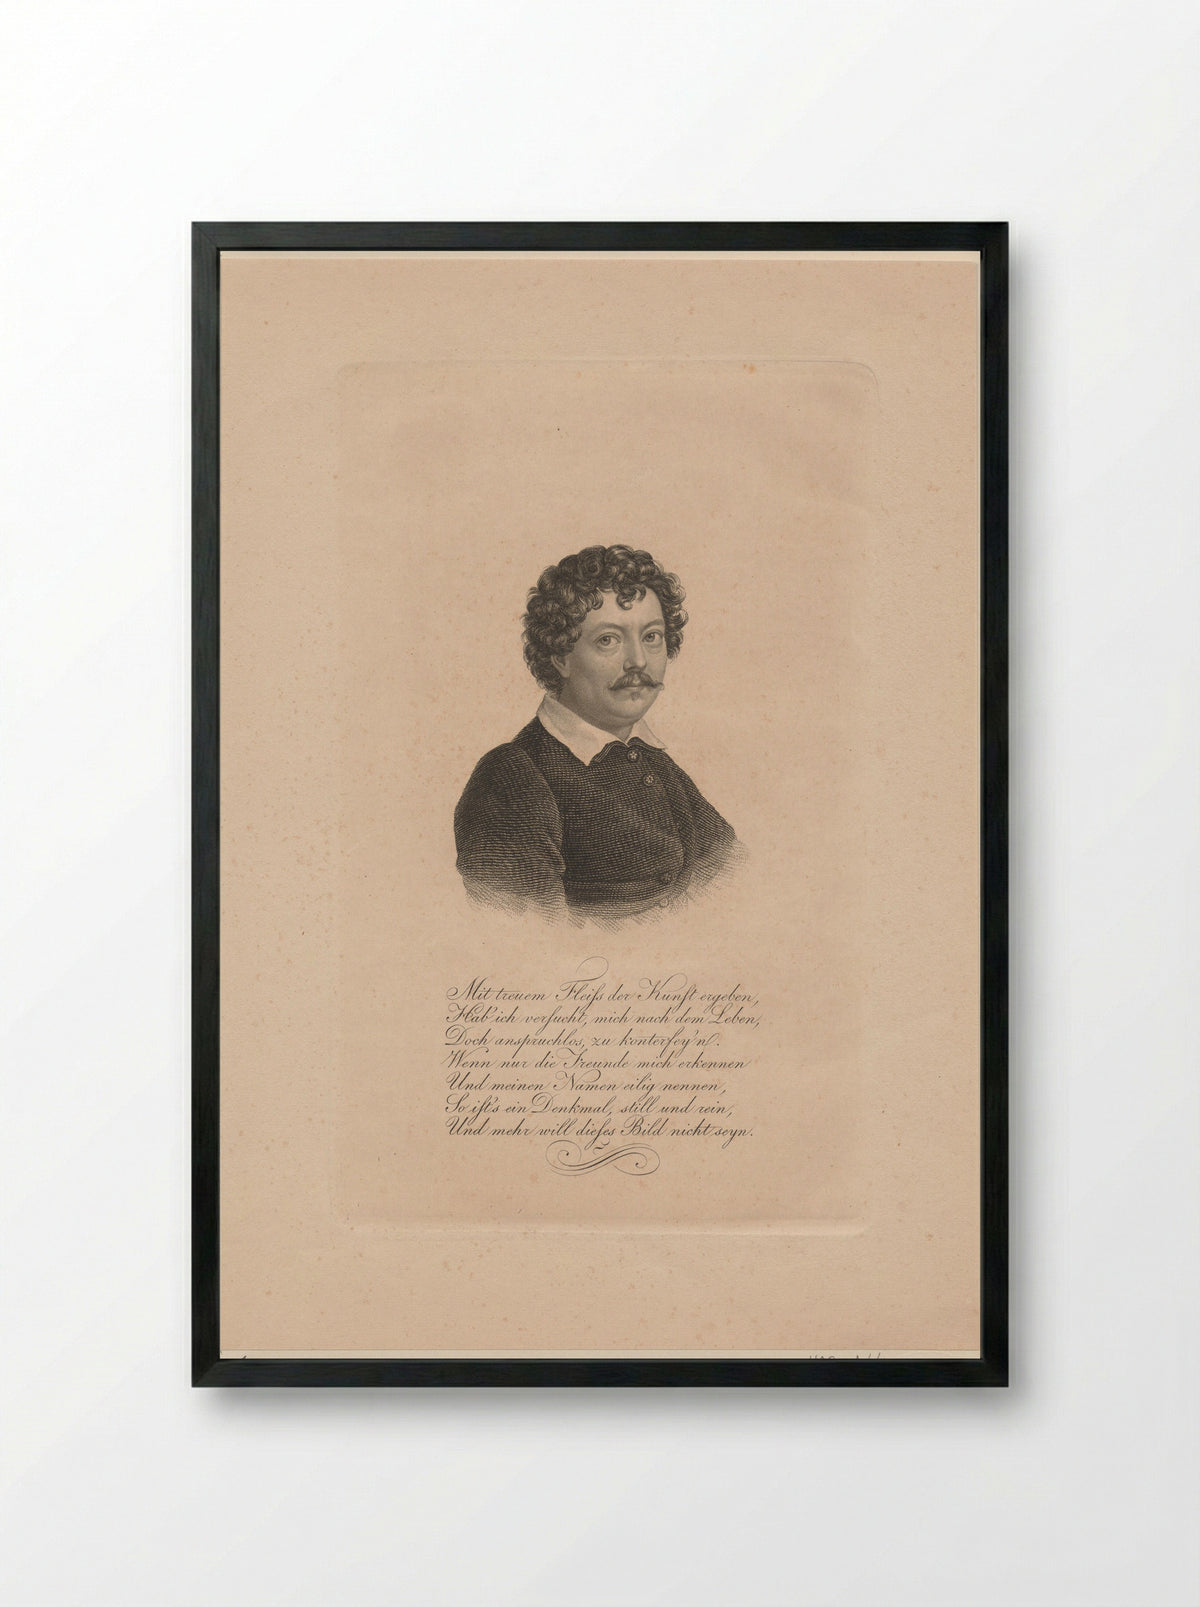 Mit treuem Fleiſs der Kunſt ergeben,
Hab' ich verſucht, mich nach dem Leben,
Doch anspruchlos, zu konterfey'n.
Wenn nur die Freunde mich erkennen
Und meinen Namen eilig nennen,
So iſt's ein Denkmal, still und rein,
Und mehr will dieſes Bild nicht seyn.